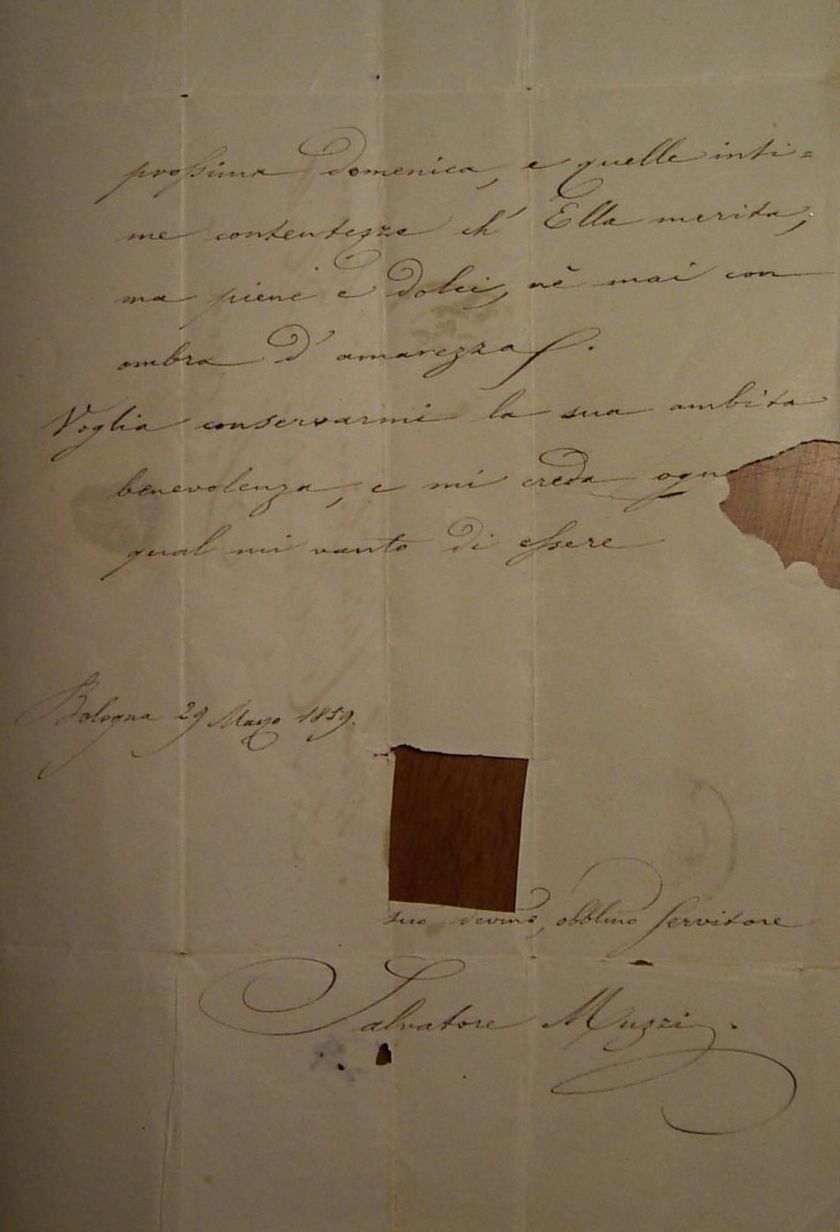 prossima Domenica, e quelle inti=
me contentezze ch' Ella merita,
ma piene e Dolci, nè mai con
ombra D' amarezza.
Voglia conservarmi la sua ambita
benevolenza, e mi creda
qual mi vanto Di essere
Bologna 29 Marzo 1859.
suo devmo, obblmo servitore
Salvatore Muzzi.